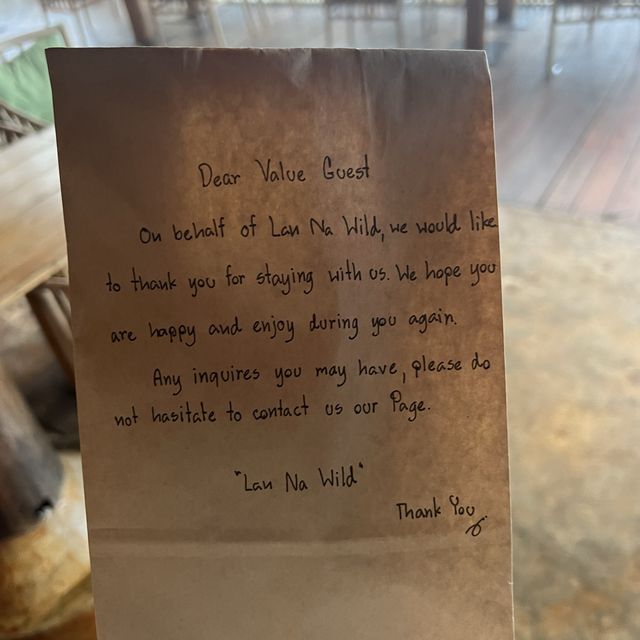 Dear Value Guest
On behalf of Lan Na Wild, we would like
to thank you for staying with us. We hope you
are happy and enjoy during you again.
Any inquires you may have, please do
not hasitate to contact us our Page.
"Lan Na Wild"
Thank You